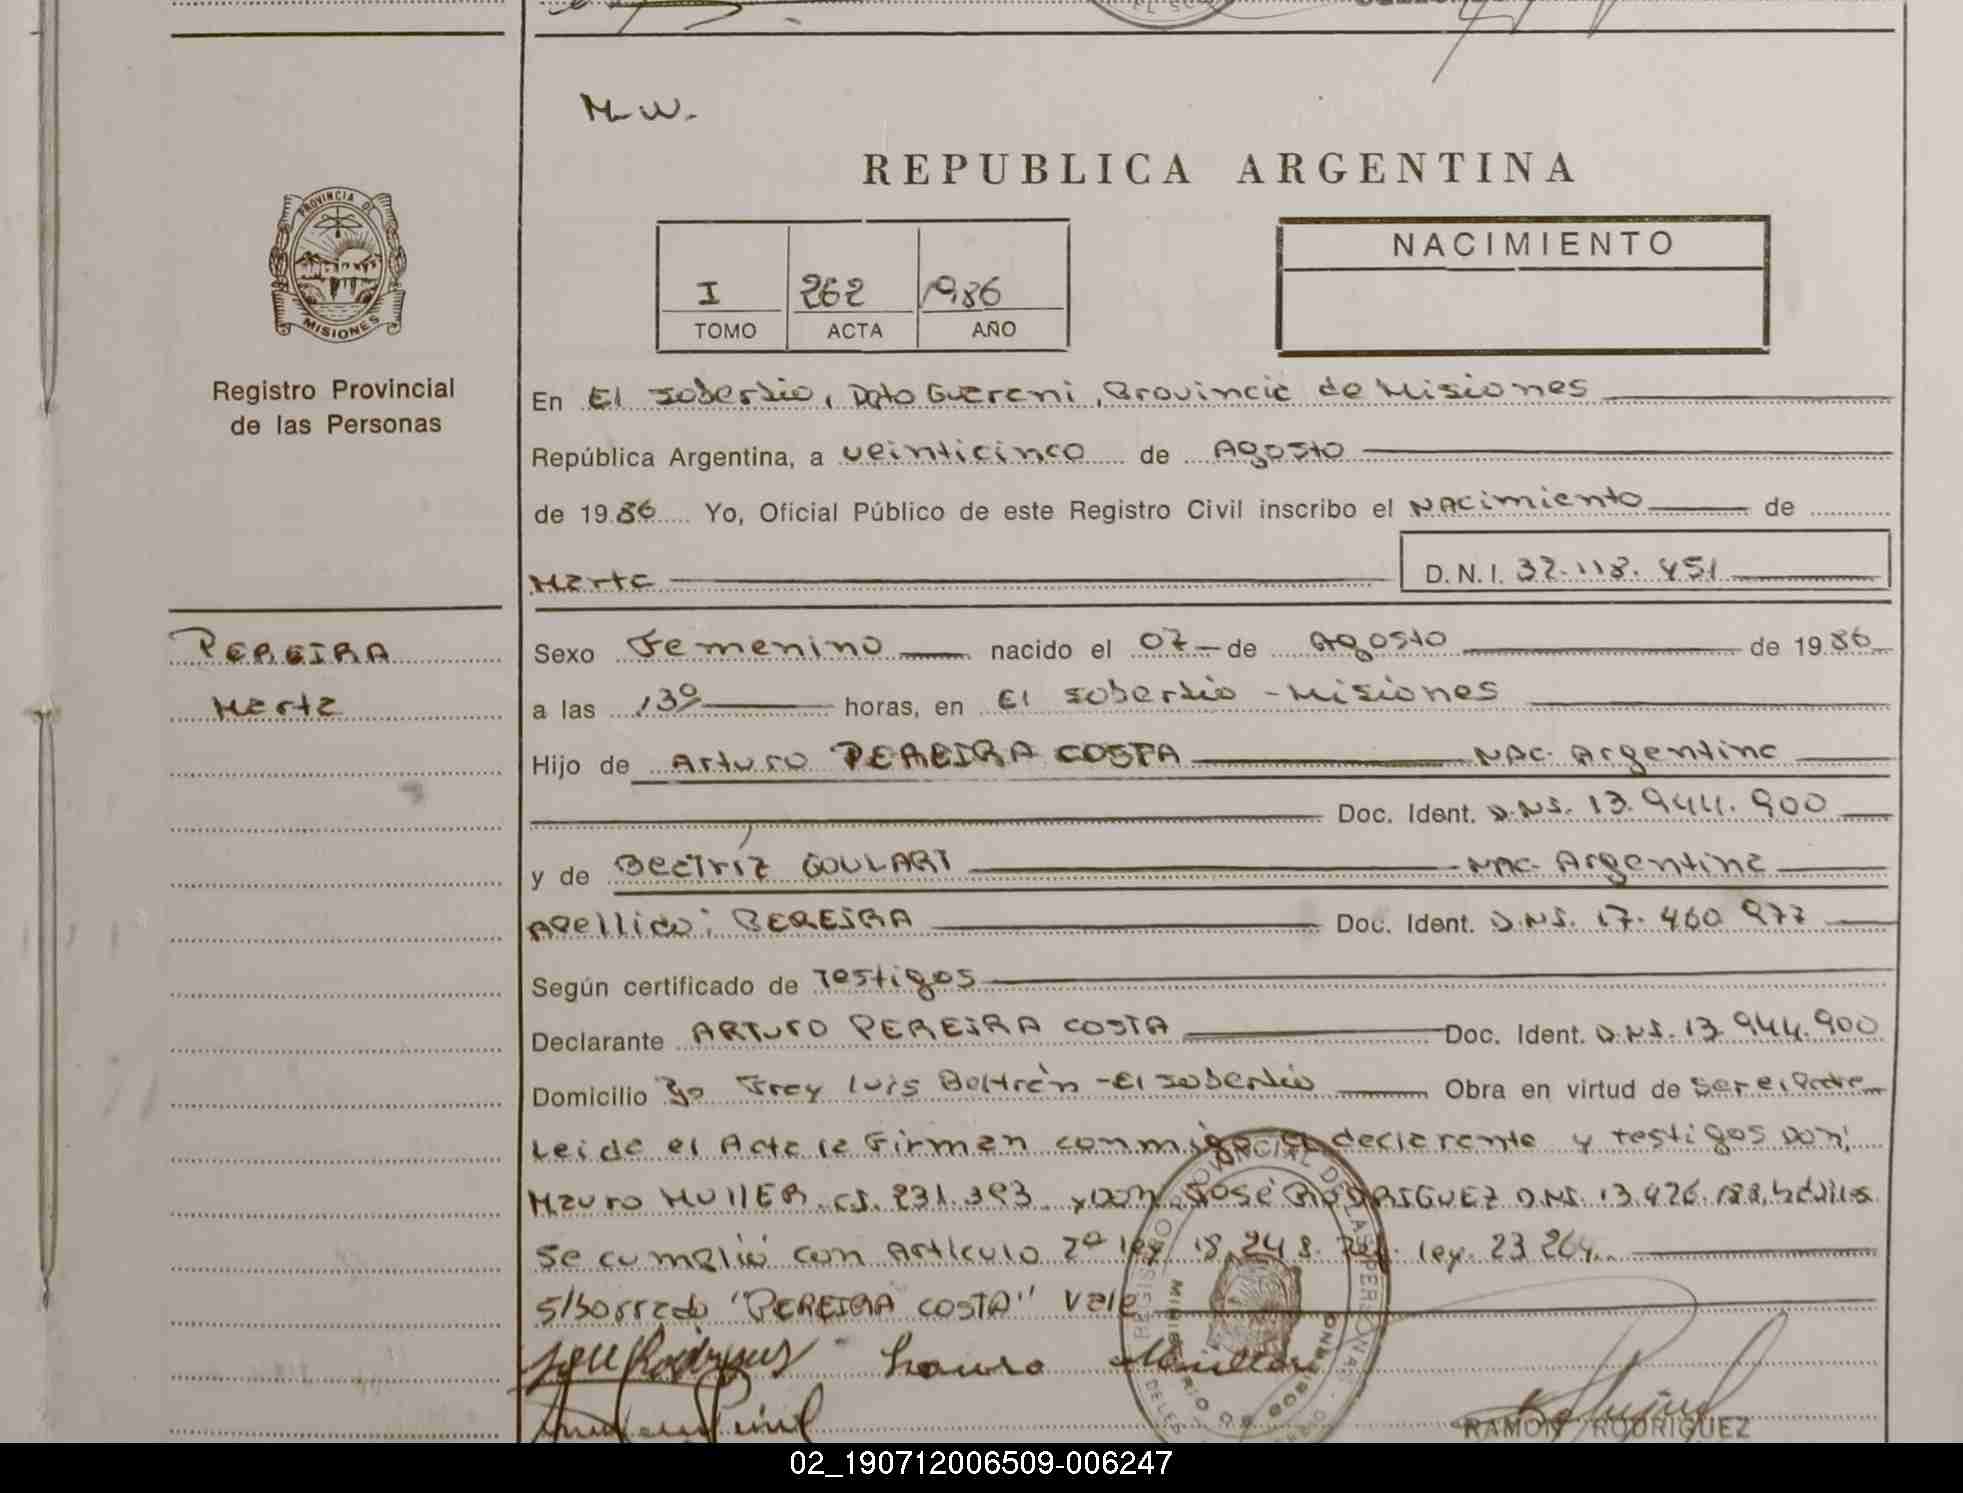 M.W.
REPUBLICA ARGENTINA
PROVINCIA DE
MISIONES
Registro Provincial
de las Personas
I 262 1986
TOMO ACTA AÑO
NACIMIENTO
En El Soberbio, Dpto Guarani, Provincia de Misiones
República Argentina, a veinticinco de Agosto
de 1986 Yo, Oficial Público de este Registro Civil inscribo el Nacimiento de
Marta D.N.I. 32.118.451
PEREIRA
Marta
Sexo Femenino nacido el 07 de Agosto de 1986
a las 13º horas, en El Soberbio - Misiones
Hijo de Arturo PEREIRA COSTA NAC. Argentina
Doc. Ident. D.N.I. 13.944.900
y de Beatríz GOULART NAC. Argentina
Apellido: PEREIRA Doc. Ident. D.N.I. 17.460.977
Según certificado de Testigos
Declarante ARTURO PEREIRA COSTA Doc. Ident. D.N.I. 13.944.900
Domicilio Bº Fray Luis Beltrán - El Soberbio Obra en virtud de ser el Padre
Leida el Acta la Firman conmigo el declarante y testigos Don:
Mauro MULLER C.I. 231.393 y Don José RODRIGUEZ D.N.I. 13.426.188, hábiles
Se cumplió con Artículo 2º ley 18.248. ley. 23.264.
S/borrado "PEREIRA COSTA" Vale
REGISTRO PROVINCIAL DE LAS PERSONAS
MINISTERIO DE GOBIERNO
José Rodriguez Mauro Muller
RAMON RODRIGUEZ
02_190712006509-006247